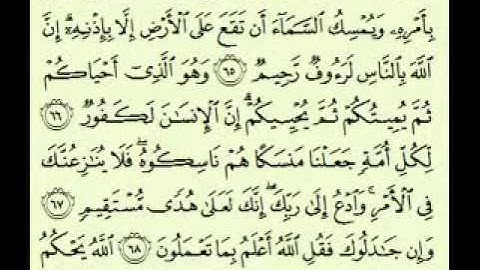 بِأَمْرِهِۦ وَيُمْسِكُ ٱلسَّمَآءَ أَن تَقَعَ عَلَى ٱلْأَرْضِ إِلَّا بِإِذْنِهِۦٓ إِنَّ
ٱللَّهَ بِٱلنَّاسِ لَرَءُوفٌ رَّحِيمٌ ٦٥ وَهُوَ ٱلَّذِىٓ أَحْيَاكُمْ
ثُمَّ يُمِيتُكُمْ ثُمَّ يُحْيِيكُمْ ۗ إِنَّ ٱلْإِنسَـٰنَ لَكَفُورٌ ٦٦
لِكُلِّ أُمَّةٍ جَعَلْنَا مَنسَكًا هُمْ نَاسِكُوهُ ۖ فَلَا يُنَـٰزِعُنَّكَ
فِى ٱلْأَمْرِ ۚ وَٱدْعُ إِلَىٰ رَبِّكَ ۖ إِنَّكَ لَعَلَىٰ هُدًى مُّسْتَقِيمٍ ٦٧
وَإِن جَـٰدَلُوكَ فَقُلِ ٱللَّهُ أَعْلَمُ بِمَا تَعْمَلُونَ ٦٨ ٱللَّهُ يَحْكُمُ